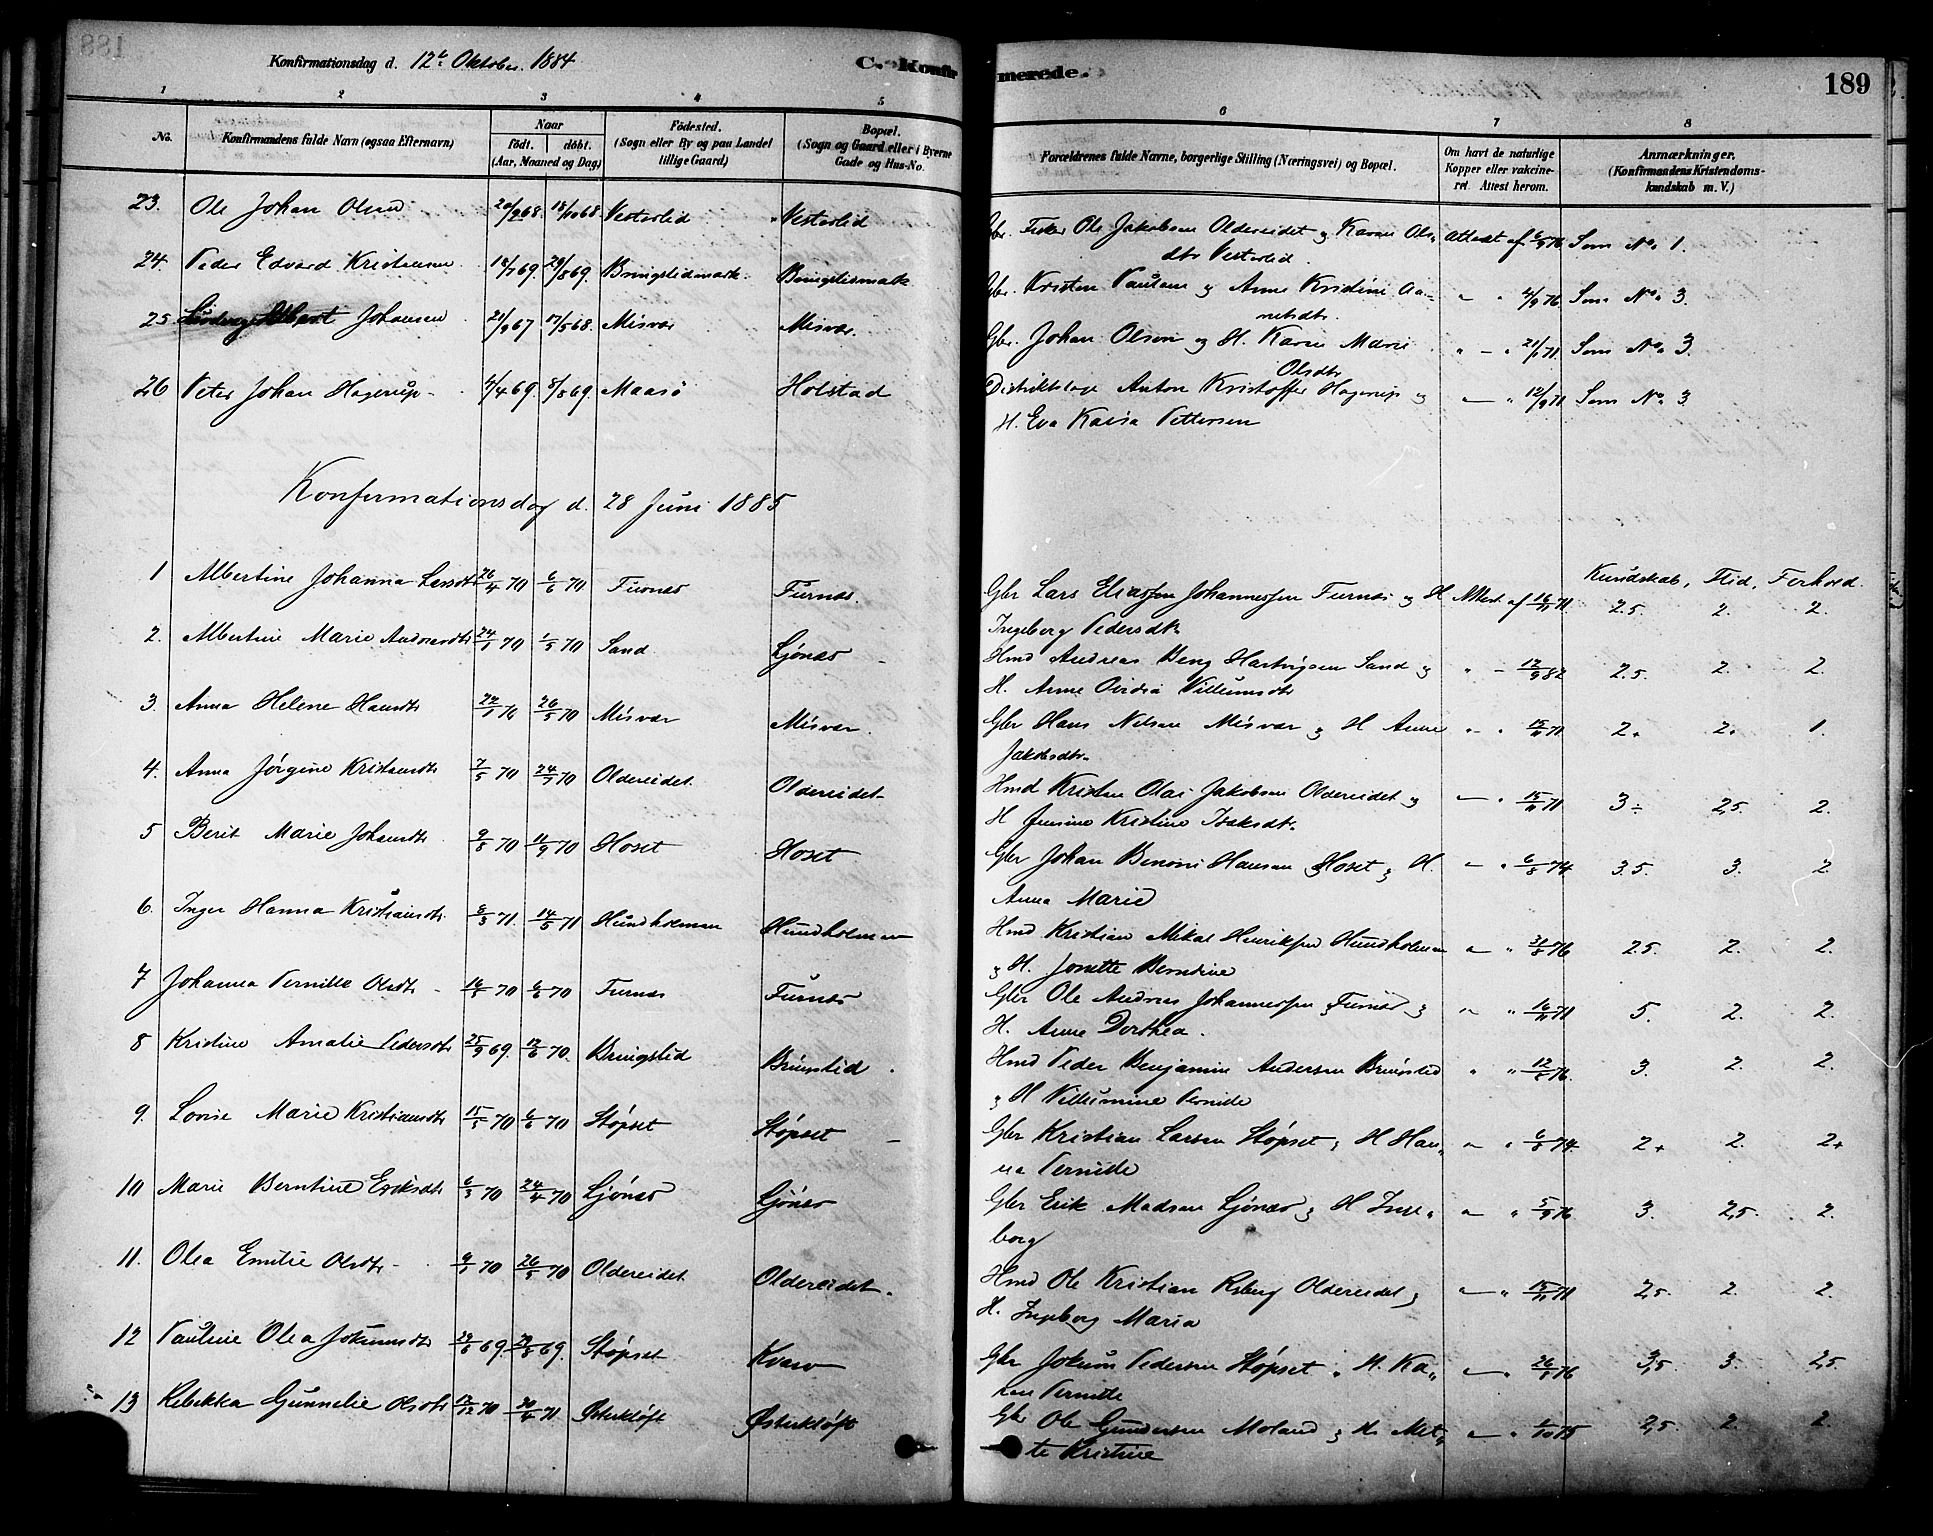 Konfirmationsdag d. 12te Oktober 1884
C. Konfirmerede.
189
1 2 3 4 5 6 7 8
No.
Konfirmandens fulde Navn (ogsaa Efternavn)
Naar
født. døbt.
(Aar, Maaned og Dag)
Fødested.
(Sogn eller By og paa Landet
tillige Gaard)
Bopæl.
(Sogn og Gaard eller i Byerne
Gade og Hus-No.
Forældrenes fulde Navne, borgerlige Stilling (Næringsvei) og Bopæl.
Om havt de naturlige
Kopper eller vakcine-
ret. Attest herom.
Anmærkninger.
(Konfirmandens Kristendoms-
kundskab m. V.)
23. Ole Johan Olsen 20/2 68 18/10 68 Vesterlid Vesterlid Gbr. Fisker Ole Jakobsen Oldereidet og Karen Ols- Attest af 6/9 76 Som No. 1.
dtr Vesterlid.
24. Peder Edvard Kristensen 18/7 69. 29/8 69. Bringslidmark. Bringslidmark Gbr. Kristen Paulsen og Anne Kristine Aa- " " 4/9 76 Som No. 3.
netsdtr.
25 Johansen 21/9 67 17/5 68. Misvær Misvær. Gbr. Johan Olsen og H. Karen Marie " - " 21/1 71. Som No. 3.
Olsdtr
26 Peter Johan Hagerup 4/4 69. 8/8 69. Maasø Holstad Distriktslæge Anton Kristoffer Hagerup og " 12/9 71 Som No. 3
H. Eva Kaisa Pettersen
Konfirmationsdag d. 28 Juni 1885
Kundskab, Flid, Forhold.
1 Albertine Johanna Larsdtr 26/4 70 6/6 70 Furnæs Furnæs. Gbr Lars Eliassen Johannessen Furnæs og H Attest af 16/11 71 2.5. 2. 2.
Ingeborg Pedersdtr.
2. Albertine Marie Andreasdtr 24/1 70 1/5 70 Sand Ljønæs Hmd Andreas Beng Hartvigsen Sand og " - 12/9 82 2.5. 2. 2
H. Anne Ovidia Villumsdtr
3. Anna Helene Hansdtr 22/1 70 26/5 70 Misvær Misvær. Gbr Hans Nilsen Misvær og H Anne " " 15/11 71 2. 2. 1.
Jakobsdtr.
4. Anna Jørgine Kristensdtr 7/5 70 24/7 70 Oldereidet Oldereidet Hmd Kristen Olai Jakobsen Oldereidet og " 15/11 71 3÷ 2,5 2.
H Jensine Kristine Isaksdtr.
5 Berit Marie Johansdtr 9/8 70 11/9 70 Hoset Hoset Gbr Johan Benoni Hansen Hoset og H. " 6/8 74 3.5. 3. 2
Anna Marie
6. Inger Hanna Kristiansdtr. 8/3 71. 14/5 71 Hundholmen Hundholmen Hmd Kristian Mikal Henriksen Hundholmen " " 31/8 76 2.5. 2. 2.
og H. Jonette Berntine
7 Johanna Pernille Olsdtr 16/5 70 6/6 70 Furnæs Furnæs Gbr Ole Andreas Johannessen Furnæs og " " 16/11 71 5. 2. 2.
H. Anne Dorthea.
8 Kristine Amalie Pedersdtr 25/9 69. 12/6 70. Bringslid Bringslid Hmd Peder Benjamin Andersen Bringslid " " 12/6 76. 3. 2. 2.
og H Villumine Pernille
9. Lovise Marie Kristiansdtr 15/5 70 6/6 70 Støpset Støpset Gbr Kristian Larsen Støpset og H Han- " " 6/8 74. 2+ 2. 2+
na Pernille
10 Marie Berntine Eriksdtr 6/3 70 24/4 70 Ljønæs Ljønæs Gbr Erik Madsen Ljønæs og H Inge- " " 5/9 76 3. 2,5. 2.
borg
11. Olea Emilie Olsdtr 9/1 70 26/5 70 Oldereidet Oldereidet. Hmd Ole Kristian Oldereidet og " " 15/11 71 2,5. 2. 2.
H. Ingeborg Maria
12 Pauline Olea Jokumsdtr 29/6 69. 29/8 69. Støpset Kvæv Gbr Jokum Pedersen Støpset H. Ka- " " 26/8 76 3,5 3. 2,5.
ren Pernille
13 Rebekka Gunnelie Olsdtr 12/12 70 30/4 71. Østerkløft Østerkløft Gbr Ole Gundersen Moland og H. Met- " " 1/10 75 2,5. 2. 2.
te Kristine